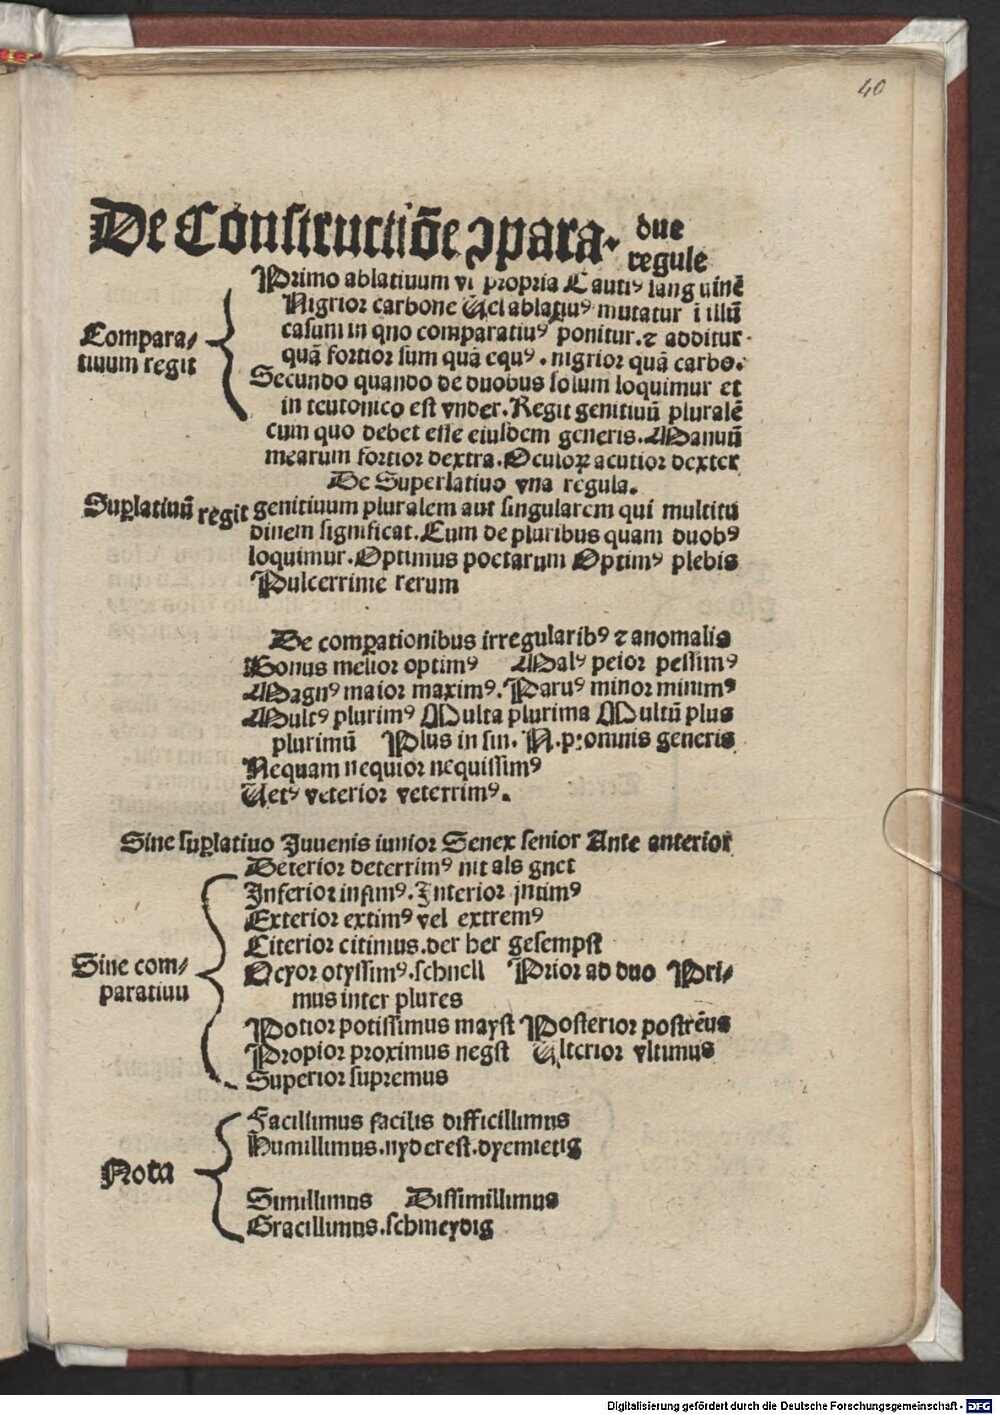 40
De Constructiõe ɔpara. due
regule
Primo ablatiuum vt propria Cautiꝰ sang uinẽ
Nigrior carbone Uel ablatiuꝰ mutatur ĩ illũ
Compara⸗
tiuum regit
casum in quo comparatiuꝰ ponitur. ⁊ additur
quã fortior sum quã equꝰ. nigrior quã carbo.
Secundo quando de duobus solum loquimur et
in teutonico est vnder. Regit genitiuũ pluralẽ
cum quo debet esse eiusdem generis. Manuũ
mearum fortior dextra. Oculoꝝ acutior dexter
De Superlatiuo vna regula.
Suꝑlatiuũ regit genitiuum pluralem aut singularem qui multitu
dinem significat. Cum de pluribus quam duobꝰ
loquimur. Optimus poetarum Optimꝰ plebis
Pulcerrime rerum
De comꝑationibus irregularibꝰ ⁊ anomalis
Bonus melior optimꝰ Malꝰ peior pessimꝰ
Magnꝰ maior maximꝰ. Paruꝰ minor minimꝰ
Multꝰ plurimꝰ Multa plurima Multũ plus
plurimũ Plus in sin. N. pro omnis generis
Nequam nequior nequissimꝰ
Uetꝰ veterior veterrimꝰ.
Sine suꝑlatiuo Juuenis iunior Senex senior Ante anterior
Deterior deterrimꝰ nit als gnet
Inferior infimꝰ. Interior intimꝰ
Exterior extimꝰ vel extremꝰ
Citerior citimus. der her gesempst
Sine com⸗
paratiuu
Ocyor otyssimꝰ. schnell Prior ad duo Pri⸗
mus inter plures
Potior potissimus mayst Posterior postrẽus
Propior proximus negst Ulterior vltimus
Superior supremus
Facillimus facilis difficillimus
Humillimus. nyderest. dyemietig
Nota
Simillimus Dissimillimus
Gracillimus. schmeydig
Digitalisierung gefördert durch die Deutsche Forschungsgemeinschaft - DFG